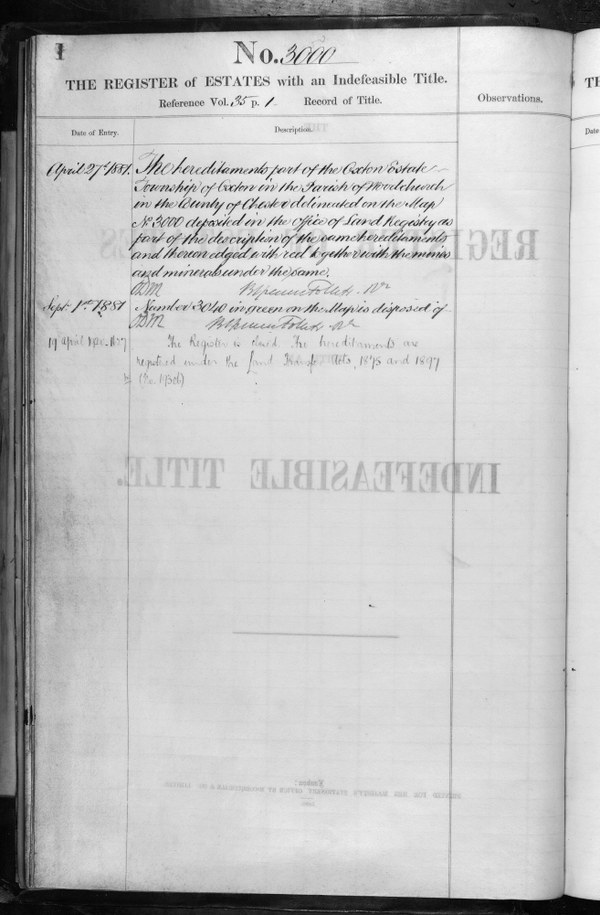 1
No. 3000
THE REGISTER of ESTATES with an Indefeasible Title.
Reference Vol. 35 p. 1. Record of Title.
Observations.
Date of Entry.
Description.
April 27th 1881. The hereditaments part of the Oxton Estate
Township of Oxton in the Parish of Woodchurch
in the County of Chester delineated on the Map
No 3000 deposited in the Office of Land Registry as
part of the description of the same hereditaments
and thereon edged with red together with the mines
and minerals under the same.
Sept. 1st 1881 Number 3040 in green on the Map is disposed of
19 April The Register is closed The hereditaments are
registered under the Land Transfer Acts, 1875 and 1897
REGISTER
INDEFEASIBLE TITLE.
London: